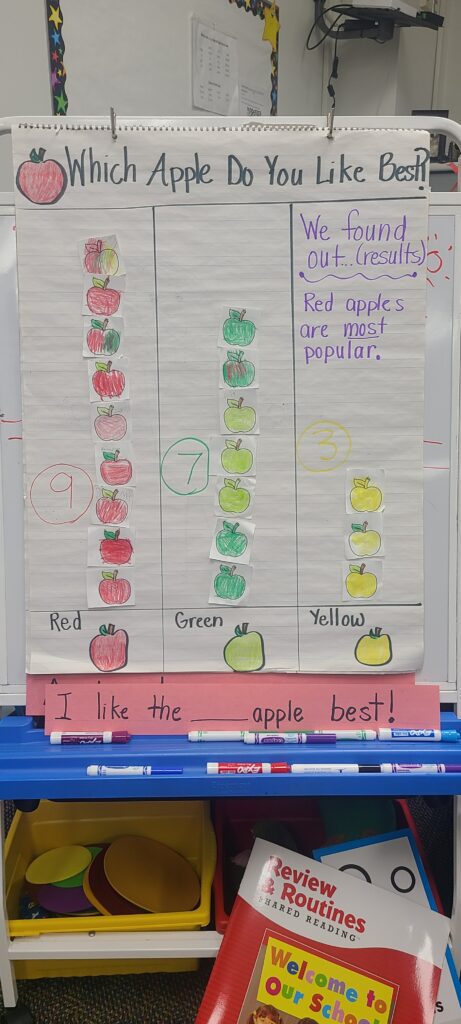 Which Apple Do You Like Best?
We found
out...(results)
Red apples
are most
popular.
9
7
3
Red
Green
Yellow
I like the ____ apple best!
EXPO
EXPO
Review
& Routines
SHARED READING
Welcome to
Our School